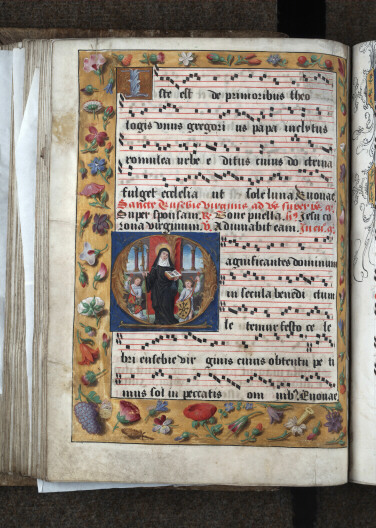 Iste est de primoribus theo
logis vnus gregori us papa inclytus
romulea vrbe e ditus cuius do ctrina
fulget ecclesia ut sole luna Euouae
Sancte Eusebie virginis ad vs super ps
Super sponsam R Bone puella Jesu co
rona virginum V Adiuuabit eam In ev
agnificantes dominum
in secula benedi ctum
le temur festo ce le
bri eusebie vir ginis cuius obtentu pe ti
mus sol in peccatis om nibus Euouae